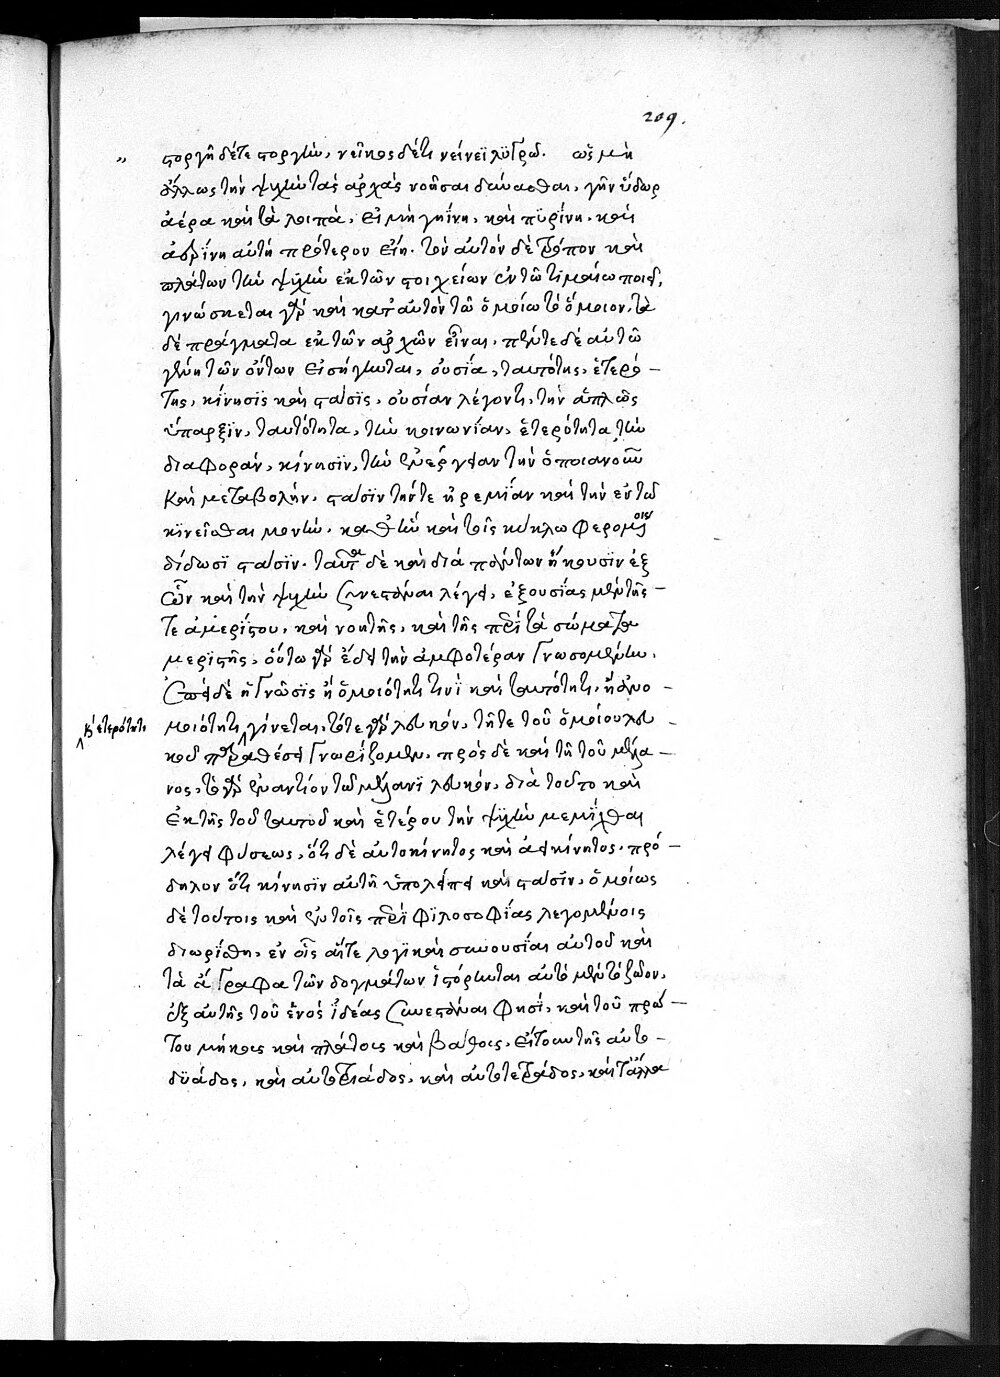 209.
" στοργῆ δέτε στοργὴν, νεῖκος δέτι νείκεϊ λυγρῶ. ὡς μὴ
ἄλλως τὴν ψυχὴν τὰς ἀρχὰς νοῆσαι δύνασθαι, γῆν ὕδωρ
ἀέρα καὶ τὰ λοιπὰ, εἰ μὴ γηΐνη, καὶ πυρίνη, καὶ
ἀερίνη αὐτὴ πρότερον εἴη. τὸν αὐτὸν δὲ τρόπον καὶ
πλάτων τὴν ψυχὴν ἐκ τῶν στοιχείων ἐν τῶ τιμαίω ποιεῖ,
γινώσκεται γὰρ καὶ κατ' αὐτὸν τῶ ὁμοίω τὸ ὅμοιον, τὰ
δὲ πράγματα ἐκ τῶν ἀρχῶν εἶναι. πέντε δὲ αὐτῶ
γένη τῶν ὄντων εἰσήγηται, οὐσία, ταυτότης, ἑτερό-
της, κίνησις καὶ στάσις, οὐσίαν λέγοντι, τὴν ἁπλῶς
ὕπαρξιν, ταυτότητα, τὴν κοινωνίαν, ἑτερότητα τὴν
διαφοράν, κίνησιν, τὴν ἐνέργειαν τὴν ὁποιανοῦν
καὶ μεταβολήν. στάσιν τήντε ἠρεμίαν καὶ τὴν ἐν τῶ
κινεῖσθαι μονὴν. καθ' ἣν καὶ τοῖς κύκλω φερομένοις
δίδωσι στάσιν. ταῦτα δὲ καὶ διὰ πάντων ἥκουσιν ἐξ
ὧν καὶ τὴν ψυχὴν συνεστάναι λέγει, ἐξ οὐσίας μὲν τῆς
τε ἀμερίστου, καὶ νοητῆς, καὶ τῆς περὶ τὰ σώματα
μεριστῆς, οὕτω γὰρ ἔδει τὴν ἀμφοτέραν γνωσομένην.
ἐπεὶ δὲ ἡ γνῶσις ἢ ὁμοιότητι τινὶ καὶ ταυτότητι, ἢ ἀνο-
μοιότητι, γίνεται, τότε γὰρ λευκόν, τῆτε τοῦ ὁμοίου λευ-
κοῦ παραθέσει γνωρίζομεν, πρὸς δὲ καὶ τῆ τοῦ μέλα-
κ' ἑτερότητι
νος, τὸ γὰρ ἐναντίον τῶ μέλανι λευκόν, διὰ τοῦτο καὶ
ἐκ τῆς τοῦ ταυτοῦ καὶ ἑτέρου τὴν ψυχὴν μεμίχθαι
λέγει φύσεως, ὅτι δὲ αὐτοκίνητος καὶ ἀεικίνητος. πρό-
δηλον ὅτι κίνησιν αὐτῆ ὑπολείπει καὶ στάσιν, ὁμοίως
δὲ τούτοις καὶ ἐν τοῖς περὶ φιλοσοφίας λεγομένοις
διωρίσθη, ἐν οἷς αἵτε λογικαὶ συνουσίαι αὐτοῦ καὶ
τὰ ἄγραφα τῶν δογμάτων ἱστόρηται αὐτὸ μὲν τὸ ζῶον.
ἐξ αὐτῆς τοῦ ἑνὸς ἰδέας συνεστάναι φησί, καὶ τοῦ πρώ-
του μήκοις καὶ πλάτοις καὶ βάθοις, εἶτα τῆς αὐτο-
δυάδος, καὶ αὐτοτριάδος, καὶ αὐτοτετράδος, καὶ τἄλλα